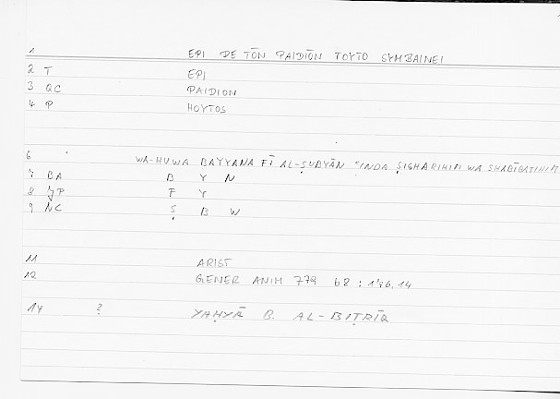 1 EPI DE TŌN PAIDIŌN TOYTO SYMBAINEI
2 T EPI
3 QC PAIDION
4 P HOYTOS
6 WA-HUWA BAYYANA FĪ AL-ṢUBYĀN ʿINDA ṢIGHARIHIM WA SHABĪBATIHIM
7 BA B Y N
8 P F Y
9 NC Ṣ B W
11 ARIST
12 GENER ANIM 779 68 : 176,14
14 ? YAḤYĀ B. AL-BIṬRĪQ